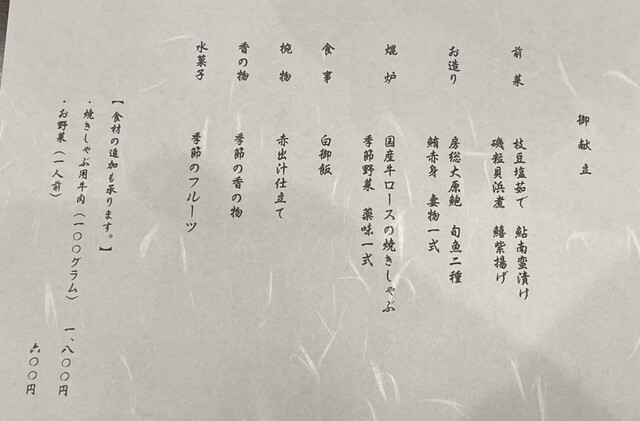 御献立
前菜
枝豆塩茹で 鮎南蛮漬け
磯粒貝浜煮 鱚紫揚げ
お造り
房総大原鮑 旬魚二種
鮪赤身 妻物一式
焜炉
国産牛ロースの焼きしゃぶ
季節野菜 薬味一式
食事
白御飯
椀物
赤出汁仕立て
香の物
季節の香の物
水菓子
季節のフルーツ
【食材の追加も承ります。】
・焼きしゃぶ用牛肉(一〇〇グラム) 一、八〇〇円
・お野菜(一人前) 六〇〇円